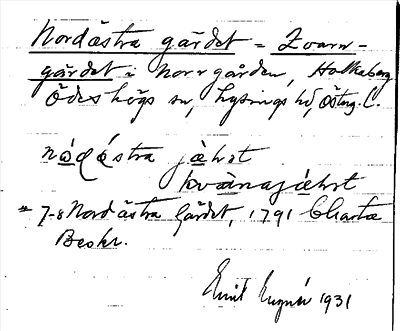 Nordästra gärdet = Zvarn-
gärdet i Norrgården, Holkaberg
Ödeshögs sn, Lysings hd, Österg. l.
nòḍástra jæ̀hrt
kvànajæ̀hrt
= 7-8 Nordästra Gärdet, 1791 Charta
Beskr.
Emil 1931